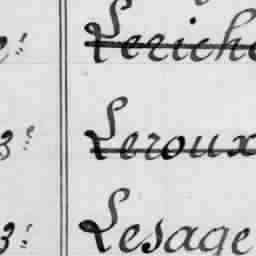 Leriche
3: Leroux
3: Lesage